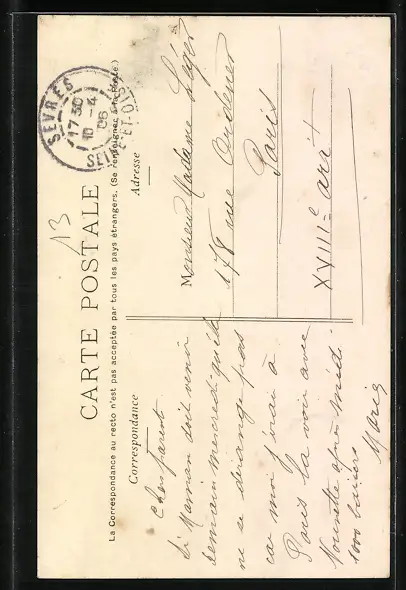 CARTE POSTALE
13
La Correspondance au recto n'est pas acceptée par tous les pays étrangers. (Se renseigner à la Poste.)
Correspondance
Chers parents
Si Maman doit venir
demain mercredi qu'elle
ne se dérange pas
car moi j'irai à
Paris la voir avec
après midi
1000 baisers
Marie
Adresse
SEVRES
17 30
10 -4
06
SEINE-ET-OISE
Monsieur Madame Léger
178 rue Ordener
Paris
XVIIIe arrt